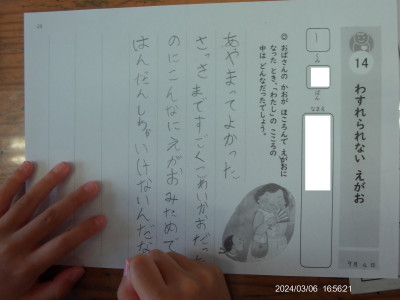 14
わすれられない えがお
1
くみ
ばん
なまえ
◎ おばさんの かおが ほころんで えがおに
なった とき、「わたし」の こころの
中は どんなだったでしょう。
あやまってよかった
さっきまですごくこわいかおだっ
のにこんなにえがおみためで
はんだんしちゃいけないんだな
2024/03/06 16:56:21